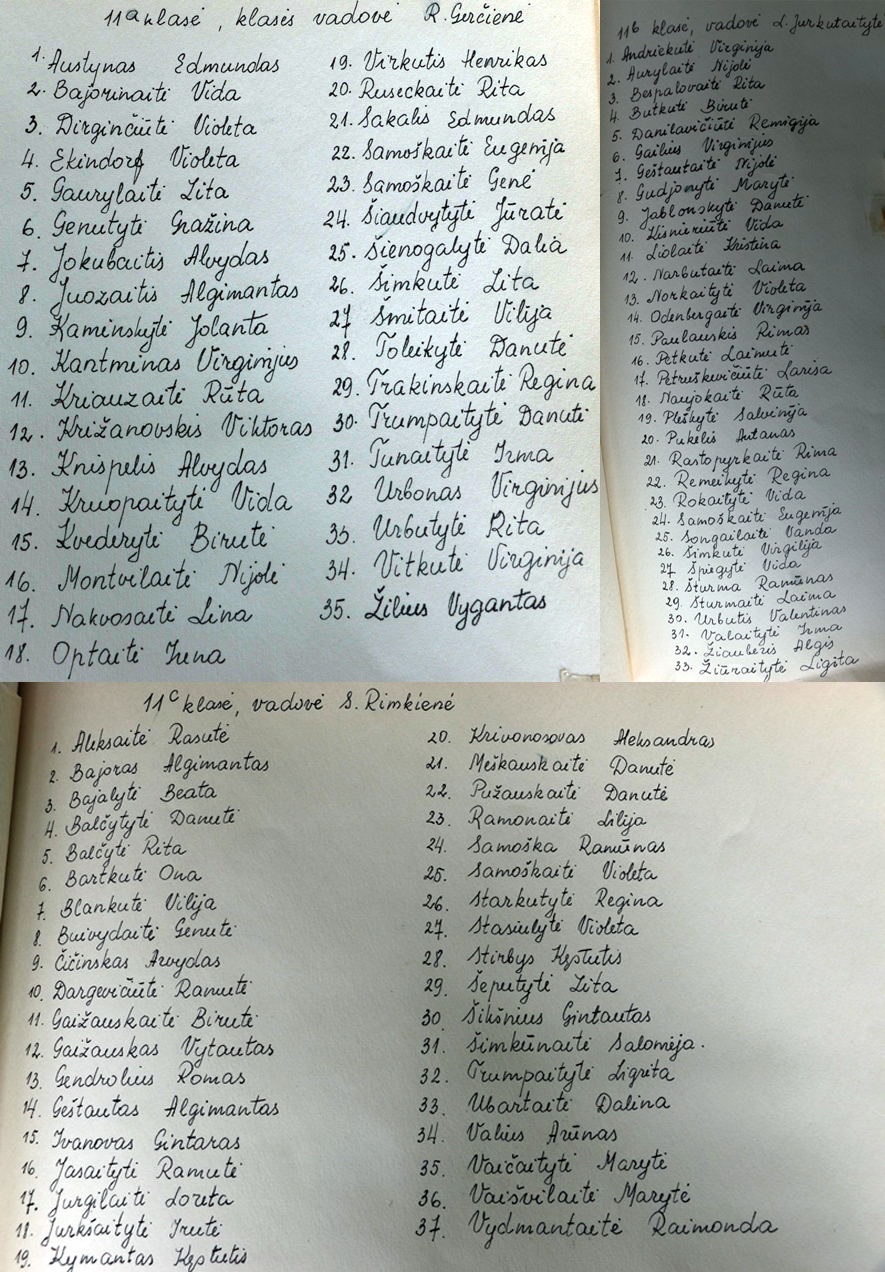 11ᵃ klasė, klasės vadovė R. Gerčienė
1. Austynas Edmundas
2. Bajorinaitė Vida
3. Dirginčiūtė Violeta
4. Ekindorf Violeta
5. Gaurylaitė Lita
6. Genutytė Gražina
7. Jokubaitis Alvydas
8. Juozaitis Algimantas
9. Kaminskytė Jolanta
10. Kantminas Virginijus
11. Kriauzaitė Rūta
12. Križanovskis Viktoras
13. Knispelis Alvydas
14. Kruopaitytė Vida
15. Kvederytė Birutė
16. Montvilaitė Nijolė
17. Nakvosaitė Lina
18. Optaitė Irena
19. Virkutis Henrikas
20. Ruseckaitė Rita
21. Sakalis Edmundas
22. Samoškaitė Eugenija
23. Samoškaitė Genė
24. Šiaudvytytė Jūratė
25. Šienogalytė Dalia
26. Šimkutė Lita
27 Šmitaitė Vilija
28. Toleikytė Danutė
29. Trakinskaitė Regina
30. Trumpaitytė Danutė
31. Tunaitytė Irma
32 Urbonas Virginijus
33. Urbutytė Rita
34. Vitkutė Virginija
35. Žilius Vygantas
11ᵇ klasė, vadovė L. Jurkutaitytė
1. Andriekutė Virginija
2. Aurylaitė Nijolė
3. Bespalovaitė Rita
4 Butkutė Birutė
5. Danilavičiūtė Remigija
6. Gailius Virginijus
7. Geštautaitė Nijolė
8. Gudjonytė Marytė
9. Jablonskytė Danutė
10. Kisnieriūtė Vida
11. Liolaitė Kristina
12. Narbutaitė Laima
13. Norkaitytė Violeta
14. Odenbergaitė Virginija
15. Paulauskis Rimas
16. Petkutė Laimutė
17. Petruškevičiūtė Larisa
18. Naujokaitė Rūta
19. Pleškytė Salvinija
20. Pukelis Antanas
21. Rastopyrkaitė Rima
22. Remeikytė Regina
23. Rokaitytė Vida
24. Samoškaitė Eugenija
25. Songailaitė Vanda
26. Šimkutė Virgilija
27 Špiegytė Vida
28. Šturma Ramūnas
29. Šturmaitė Laima
30. Urbutis Valentinas
31. Valaitytė Irma
32. Žiauberis Algis
33. Žiūraitytė Ligita
11ᶜ klasė, vadovė S. Rimkienė
1. Aleksaitė Rasutė
2. Bajoras Algimantas
3. Bajalytė Beata
4. Balčytytė Danutė
5. Balčytė Rita
6. Bartkutė Ona
7. Blankutė Vilija
8. Buivydaitė Genutė
9. Čičinskas Arvydas
10. Dargevičiūtė Ramutė
11. Gaižauskaitė Birutė
12. Gaižauskas Vytautas
13. Gendrolius Romas
14. Geštautas Algimantas
15. Ivanovas Gintaras
16. Jasaitytė Ramutė
17. Jurgilaitė Loreta
18. Jurkšaitytė Irutė
19. Kymantas Kęstutis
20. Krivonosovas Aleksandras
21. Meškauskaitė Danutė
22. Pužauskaitė Danutė
23. Ramonaitė Lilija
24. Samoška Ramūnas
25. Samoškaitė Violeta
26 Starkutytė Regina
27. Stasiulytė Violeta
28. Stirbys Kęstutis
29. Šeputytė Lita
30 Šikšnius Gintautas
31. Šimkūnaitė Salomėja.
32. Trumpaitytė Ligrita
33. Ubartaitė Dalina
34. Valius Arūnas
35. Vaičaitytė Marytė
36. Vaišvilaitė Marytė
37. Vydmantaitė Raimonda